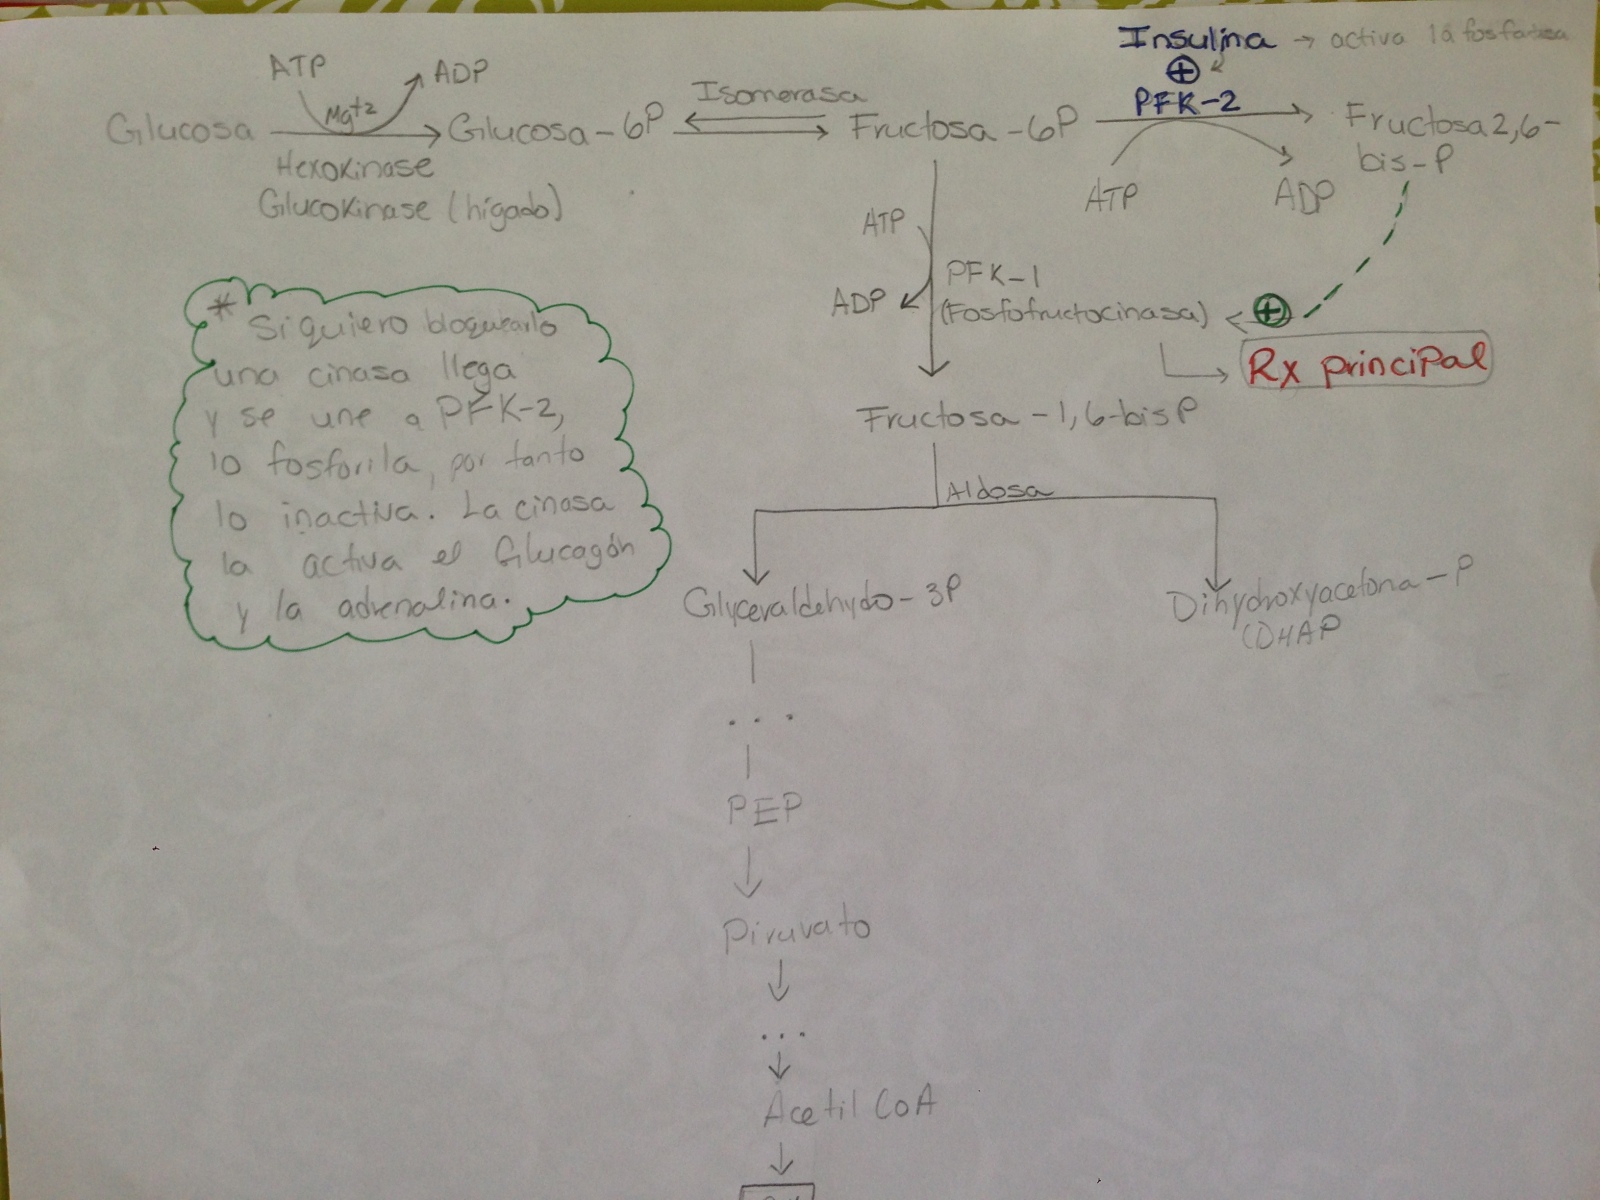 Insulina → activa la fosfatasa
⊕
ATP ADP
Mg+2
Isomerasa
PFK-2
Glucosa → Glucosa-6P ⇌ Fructosa-6P → Fructosa 2,6-
bis-P
Hexokinase
Glucokinase (hígado)
ATP ADP
ATP
ADP
PFK-1
(Fosfofructocinasa) ← ⊕
Rx principal
Fructosa-1,6-bisP
Aldosa
Glyceraldehydo-3P
Dihydroxyacetona-P
(DHAP
...
PEP
Piruvato
...
Acetil CoA
* Si quiero bloquearlo
una cinasa llega
y se une a PFK-2,
lo fosforila, por tanto
lo inactiva. La cinasa
la activa el Glucagón
y la adrenalina.